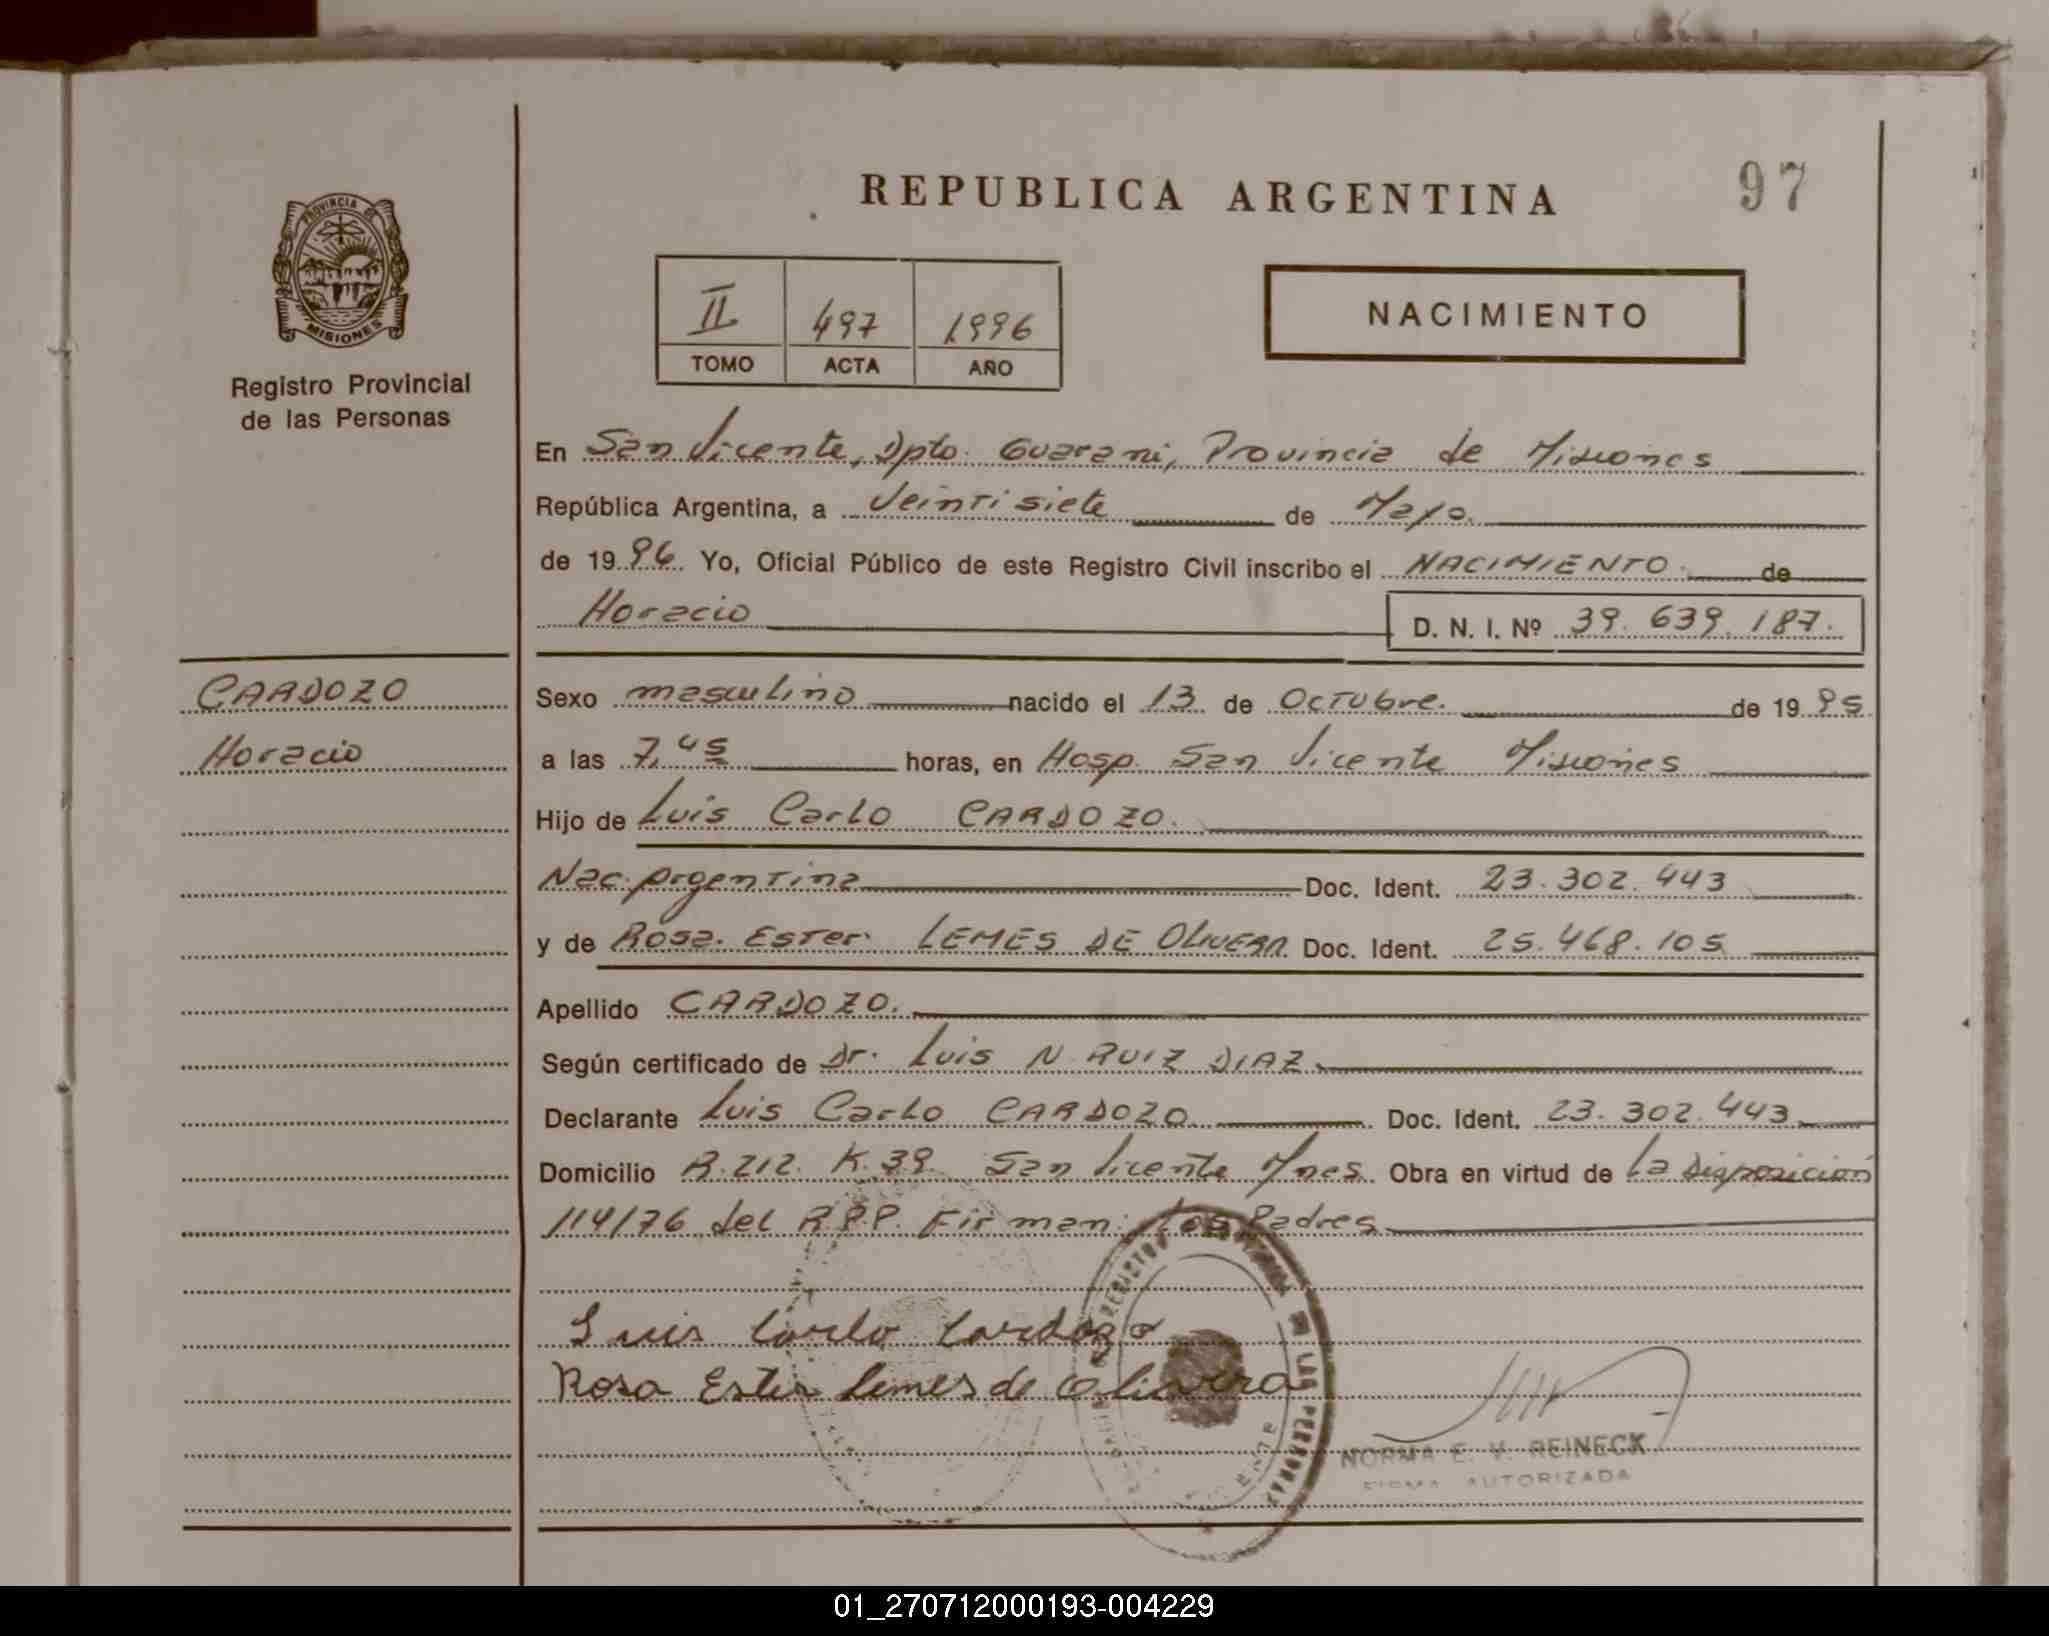 REPUBLICA ARGENTINA
97
PROVINCIA DE
MISIONES
Registro Provincial
de las Personas
II 497 1996
TOMO ACTA AÑO
NACIMIENTO
En San Vicente, Dpto. Guarani, Provincia de Misiones
República Argentina, a Veintisiete de Mayo.
de 1996 Yo, Oficial Público de este Registro Civil inscribo el NACIMIENTO de
Horacio
D. N. I. Nº 39.639.187.
CARDOZO
Horacio
Sexo masculino nacido el 13 de Octubre. de 1995
a las 7,45 horas, en Hosp. San Vicente Misiones
Hijo de Luis Carlo CARDOZO.
Nac. Argentina Doc. Ident. 23.302.443
y de Rosa Ester LEMES DE OLIVERA Doc. Ident. 25.468.105
Apellido CARDOZO.
Según certificado de Dr. Luis N RUIZ DIAZ
Declarante Luis Carlo CARDOZO Doc. Ident. 23.302.443
Domicilio R.212. K.39. San Vicente Mnes. Obra en virtud de la Disposición
114/76 del R.P.P. Firman: Los Padres
Luis Carlo Cardozo
Rosa Ester Lemes de Olivera
DE LAS PERSONAS
NORMA E. V. REINECK
FIRMA AUTORIZADA
01_270712000193-004229